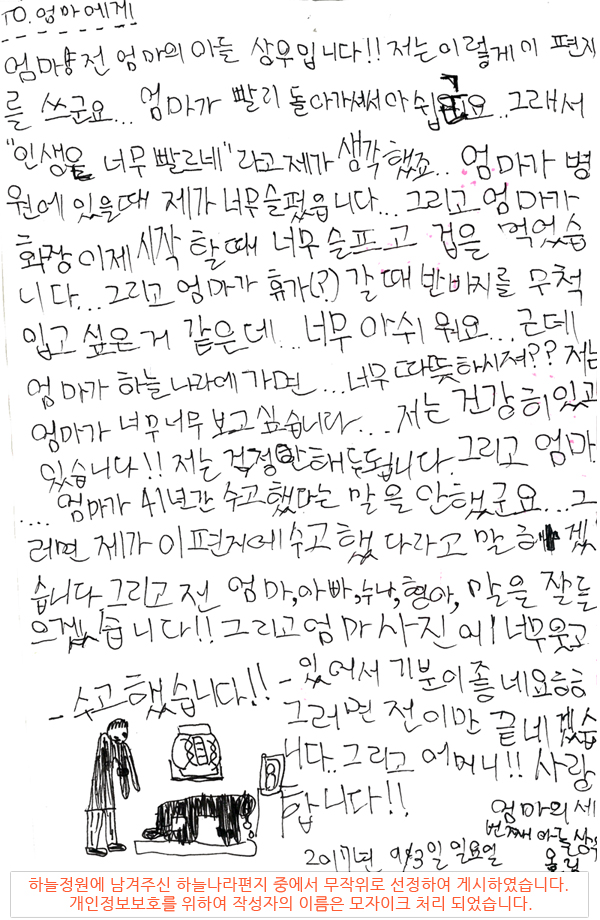 TO. 엄마에게!
엄마 전 엄마의 아들 상우입니다!! 저는 이렇게 이 편지
를 쓰군요... 엄마가 빨리 돌아가셔서 아쉽군요.. 그래서
"인생은 너무 빠르네"라고 제가 생각했죠... 엄마가 병
원에 있을때 제가 너무 슬펐읍니다... 그리고 엄마가
화장 이제 시작 할때 너무 슬프고 겁을 먹었습
니다... 그리고 엄마가 휴가(?) 갈 때 반바지를 무척
입고 싶은거 같은데... 너무 아쉬워요... 근데
엄마가 하늘나라에 가면... 너무 따뜻하시져?? 저는
엄마가 너무너무 보고싶습니다... 저는 건강히 있고
있습니다!! 저는 걱정안해두됩니다. 그리고 엄마
.... 엄마가 41년간 수고했다는 말을 안했군요... 그
레면 제가 이 편지에 수고했다라고 말하겠
습니다. 그리고 전 엄마, 아빠, 누나, 형아, 말을 잘들
으겠습니다!! 그리고 엄마 사진에 너무 웃고
있어서 기분이 좋네요 ㅎㅎ
- 수고했습니다!! -
그러면 전 이만 끝네겠습
니다.. 그리고 어머니!! 사랑
합니다!!
엄마의 세
번째 아들 상우
올림
2017년 9/3일 일요일
하늘정원에 남겨주신 하늘나라편지 중에서 무작위로 선정하여 게시하였습니다.
개인정보보호를 위하여 작성자의 이름은 모자이크 처리 되었습니다.